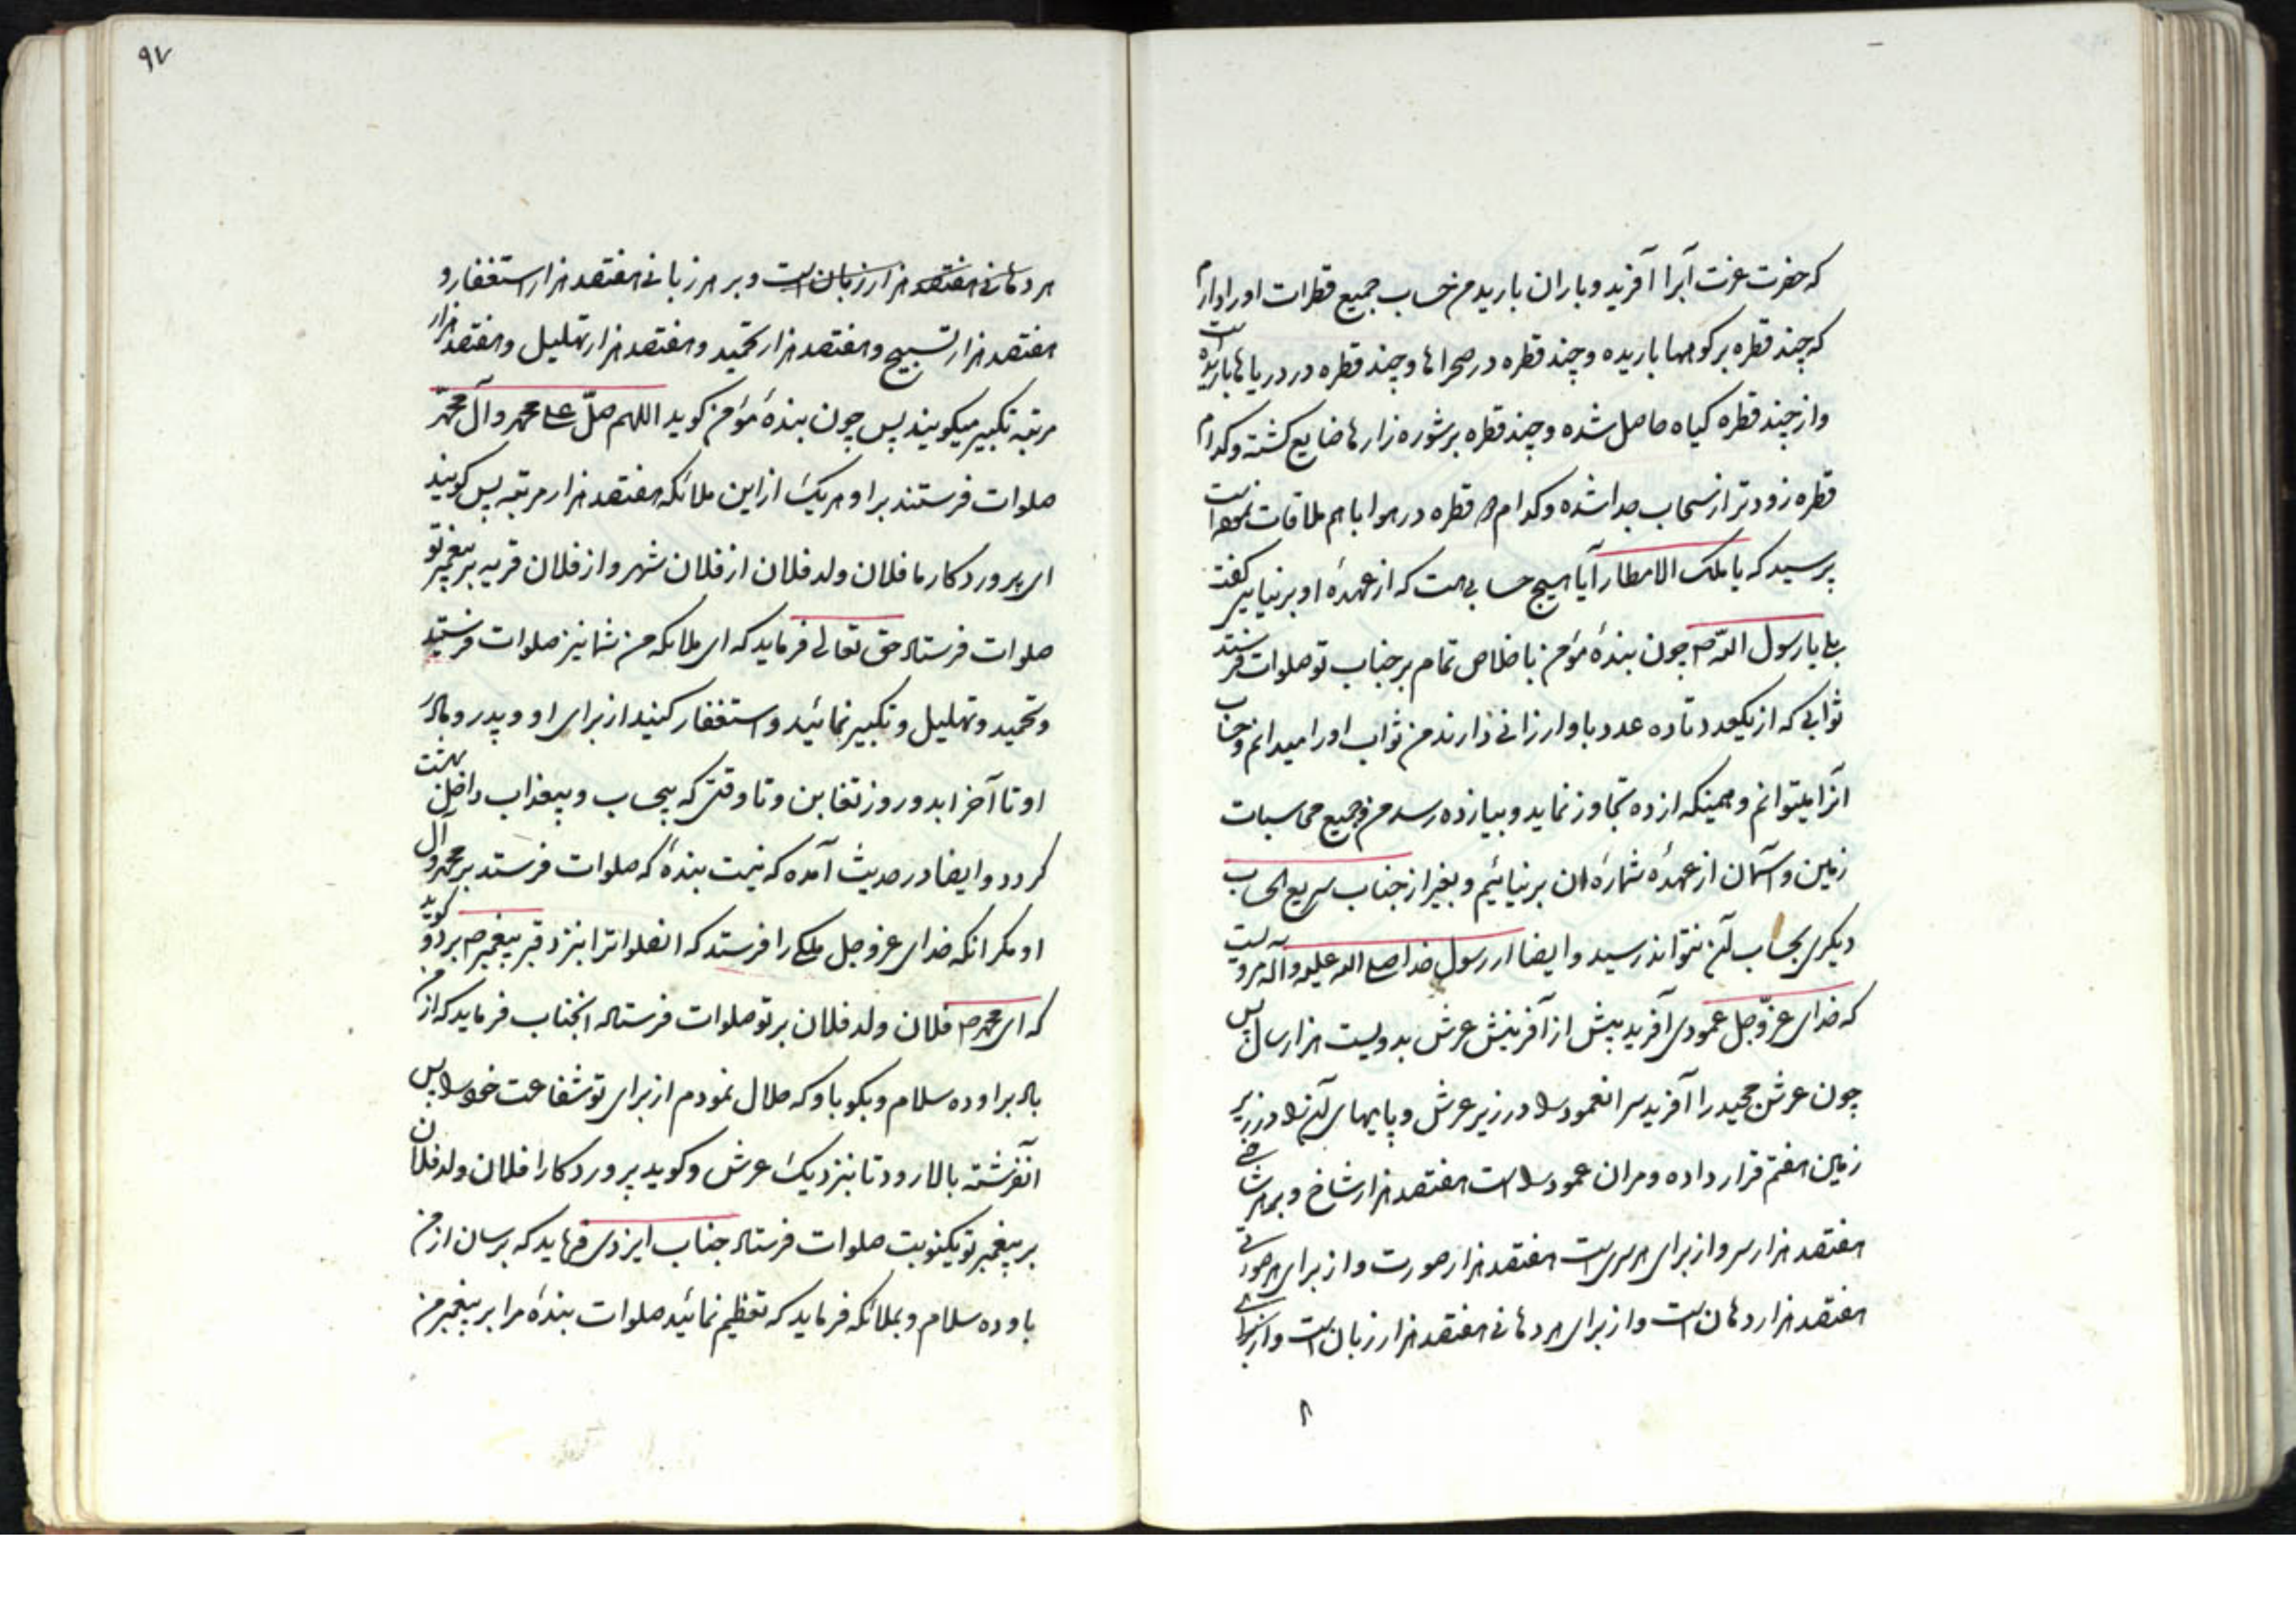 که حضرت عزت آبرا آفرید و باران بارید من حساب جمیع قطرات او را دارم
که چند قطره بر کوهها باریده و چند قطره در صحراها و چند قطره در دریاها باریده است
و از چند قطره کیاه حاصل شده و چند قطره بر شوره زارها ضایع کشته و کدام
قطره زودتر از سحاب جدا شده و کدام دو قطره در هوا با هم ملاقات نموده است
پرسید که یا ملک الامطار آیا هیچ حسابی هست که از عهدهٔ او بر نیایی کفت
بلی یا رسول اللّه ص چون بندهٔ مؤمن باخلاص تمام بر جناب تو صلوات فرستد
ثوابی که از یکعدد تا ده عدد باو ارزانی دارند من ثواب او را میدانم و حساب
آنرا میتوانم و همینکه از ده تجاوز نماید و بیازده رسد من و جمیع محاسبات
زمین و آسمان از عهدهٔ شمارهٔ ان بر نیائیم و بغیر از جناب سریع الحساب
دیکری بحساب آن نتواند رسید و ایضا از رسول خدا صلی الله علیه و آله مرویست
که خدای عزّ و جل عمودی آفرید پیش از آفرینش عرش بدویست هزار سال پس
چون عرش مجید را آفرید سر انعمود را در زیر عرش و پایهای آن را در زیر
زمین هفتم قرار داده و مران عمود را است هفتصد هزار شاخ و بر هر شاخی
هفتصد هزار سر و از برای هر سری است هفتصد هزار صورت و از برای هر صورتی
هفتصد هزار دهان است و از برای هر دهانی هفتصد هزار زبان است و از برای
۹۷
هر دهانی هفتصد هزار زبان است و بر هر زبانی هفتصد هزار استغفار و
هفتصد هزار تسبیح و هفتصد هزار تحمید و هفتصد هزار تهلیل و هفتصد هزار
مرتبه تکبیر میکویند پس چون بندهٔ مؤمن کوید اللهم صلّ علی محمد و آل محمد
صلوات فرستند بر او هر یک از این ملائکه هفتصد هزار مرتبه پس کویند
ای پروردکار ما فلان ولد فلان از فلان شهر و از فلان قریه بر پیغمبر تو
صلوات فرستاد حق تعالی فرماید که ای ملائکه من شما نیز صلوات فرستید
و تحمید و تهلیل و تکبیر نمائید و استغفار کنید از برای او و پدر و مادر
او تا آخر ابد و روز تغابن و تا وقتی که بیحساب و بیعذاب داخل بهشت
کردد و ایضا در حدیث آمده که نیست بندهٔ که صلوات فرستد بر محمد و آل
او مکر انکه خدای عز و جل ملکی را فرستد که انصلواترا بنزد قبر پیغمبر ص برد و کوید
که ای محمد ص فلان ولد فلان بر تو صلوات فرستاد انجناب فرماید که از من
باد بر او ده سلام و بکو باو که حلال نمودم از برای تو شفاعت خود را پس
آنفرشته بالا رود تا بنزدیک عرش و کوید پروردکارا فلان ولد فلان
بر پیغمبر تو یکنوبت صلوات فرستاد جناب ایزدی فرماید که برسان از من
باو ده سلام و بملائکه فرماید که تعظیم نمائید صلوات بندهٔ مرا بر پیغمبر من